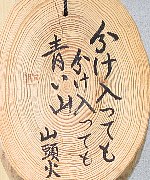 分け入っても
分け入っても
青い山
山頭火